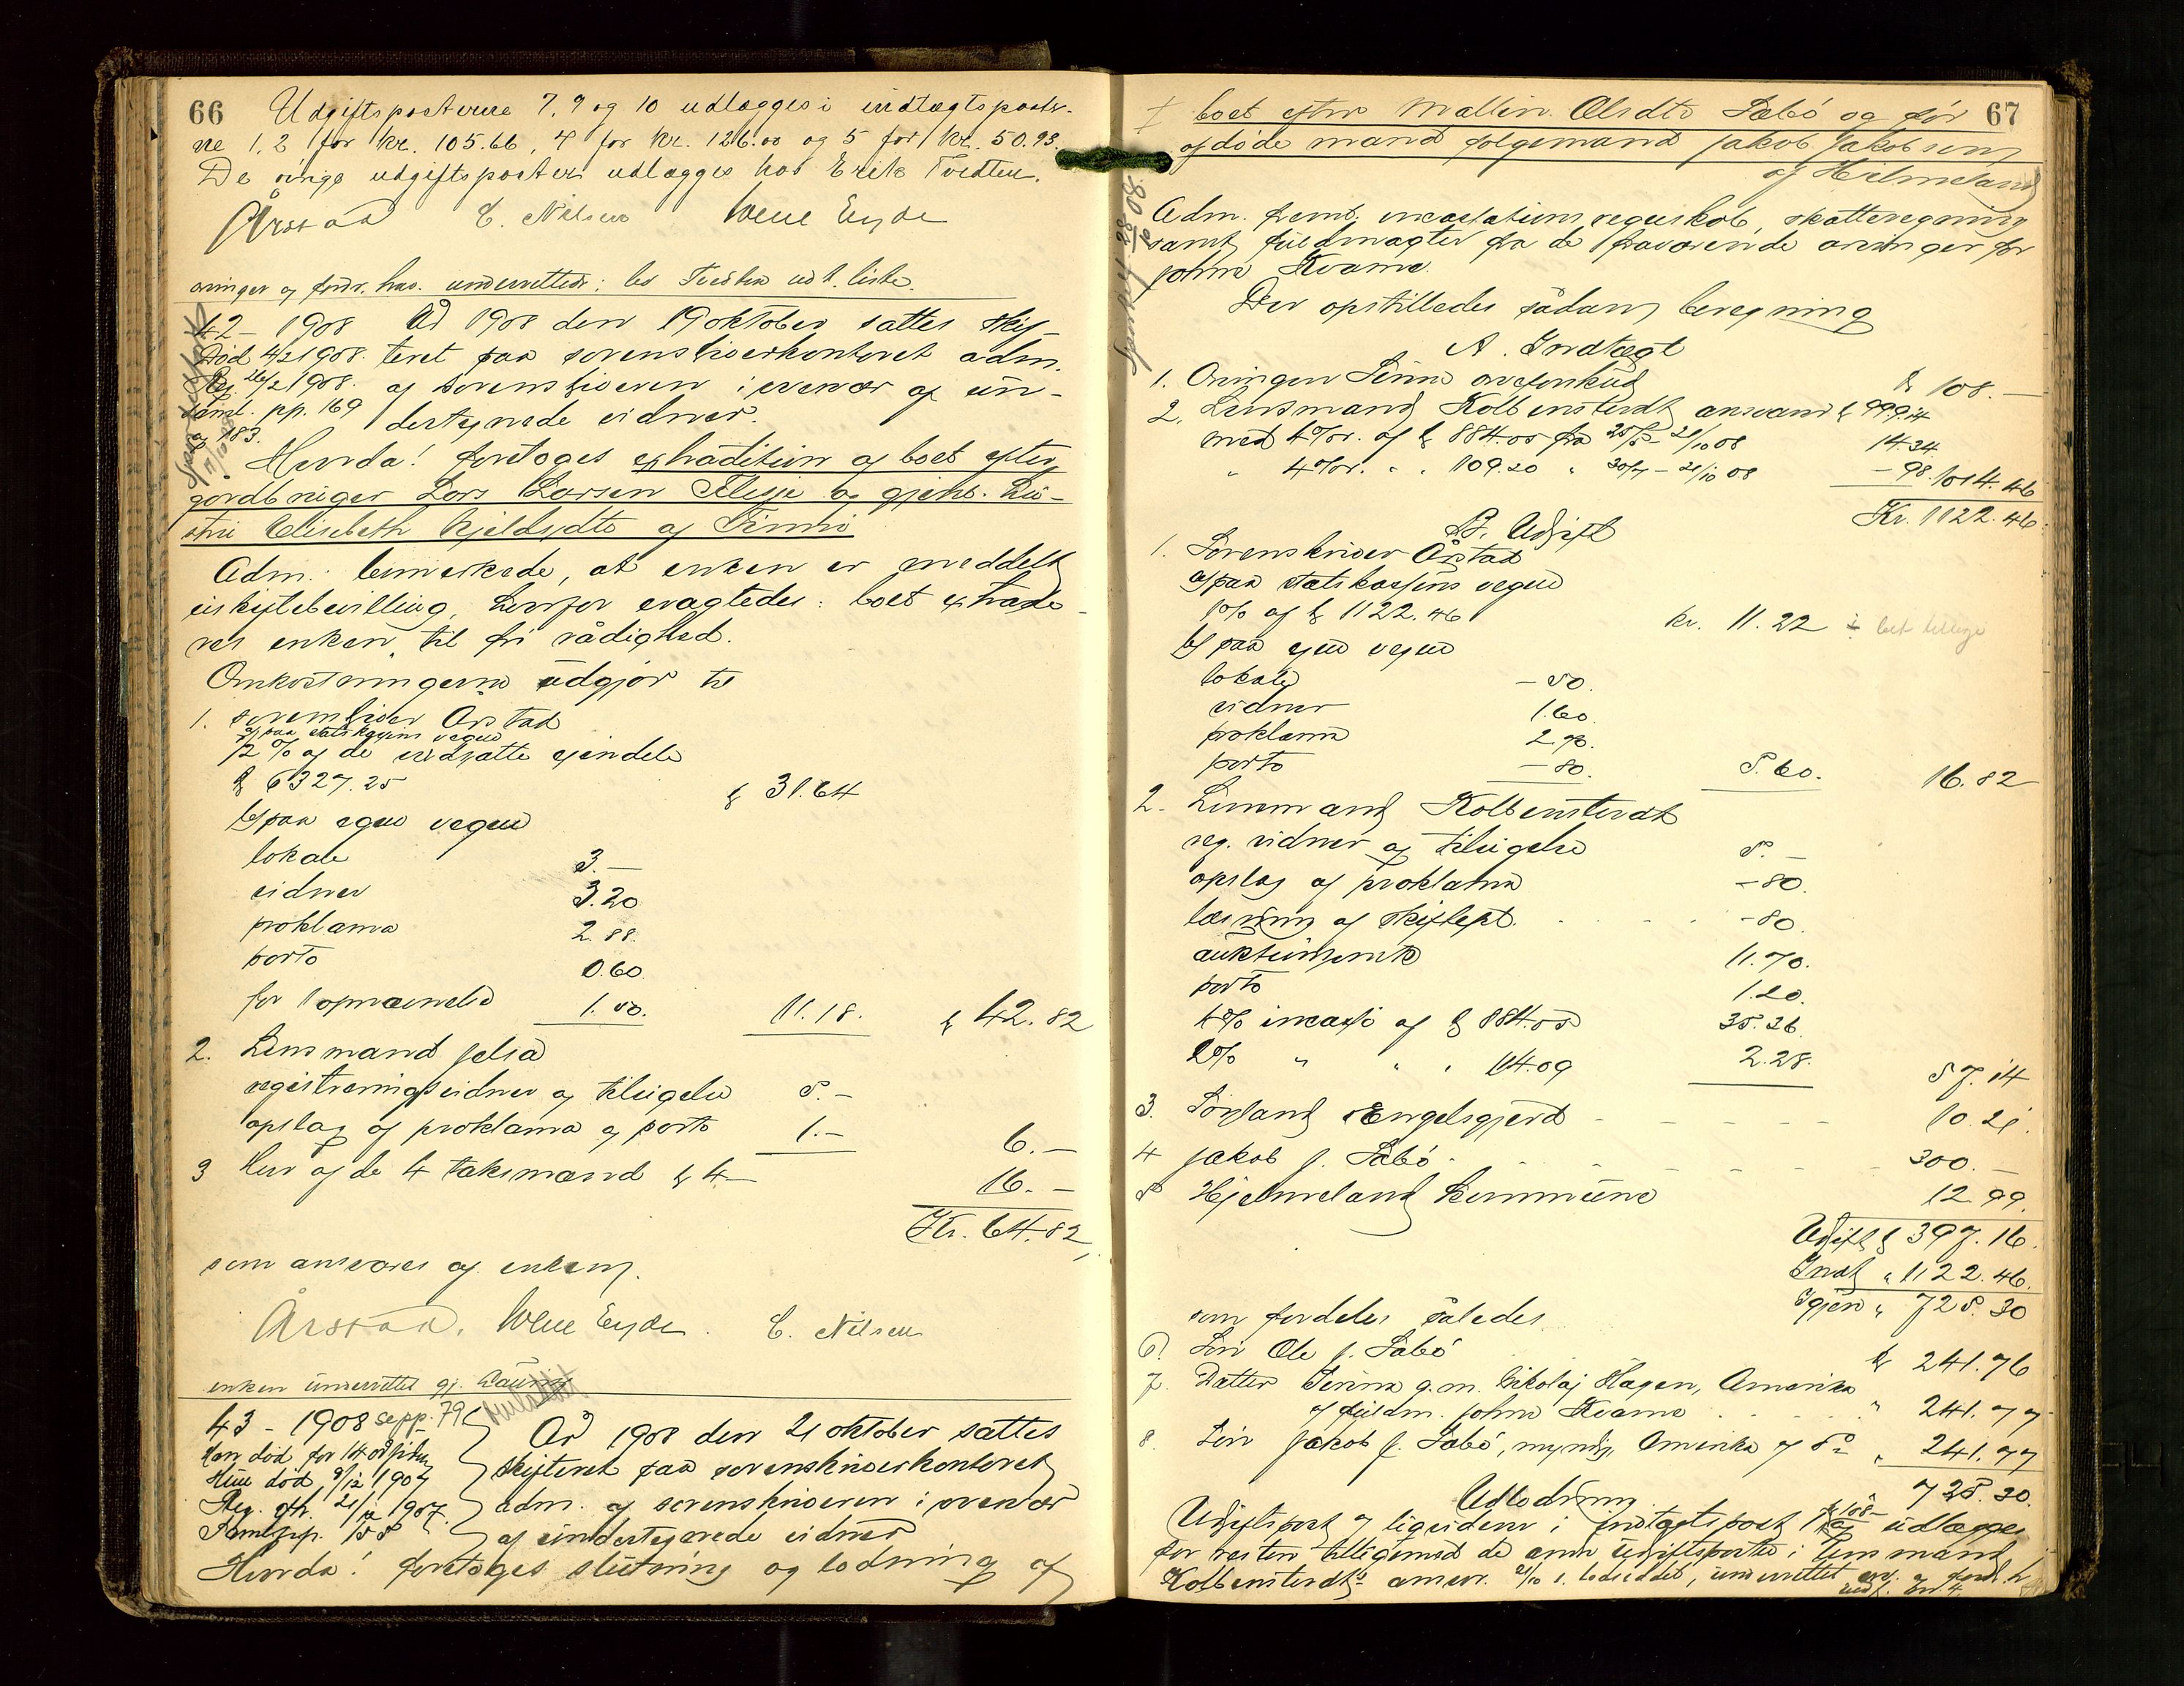 66 Udgiftsposterne 7, 9 og 10 udlægges i indtægtsposter-
ne 1, 2 for kr. 105.66, 4 for kr. 126.00 og 5 for kr. 50.93.
De øvrige udgiftsposter udlægges hos Erik Tvedten.
Årstad E. Nilsen Wene Eyde
arvinger og fordr. hav. underrettede; les Tredten udt. liste.
42 - 1908
Død 4/2 1908.
Reg. 26/2 1908.
saml. pp. 169
og 183.
År 1908 den 19 oktober sattes skif-
teret paa sorenskriverkontoret adm.
af sorenskriveren i overvær af un-
dertegnede vidner.
Hvorda! foretoges extradition af boet efter
gårdbruger Lars Larsen og gjenl.
Elisabeth Kjeldsdtr af
Adm. bemerkede, at enken er meddelt
uskiftebevilling, hvorfor eragtedes: boet extrade-
res enken til fri rådighed.
Omkostningerne udgjør til
1. sorenskriver Årstad
a) paa statskassens vegne
1/2 % af de indsatte eiendele
kr 6327.25 kr 31.64
b) paa egne vegne
lokale 3.—
vidner 3.20
proklama 2.88.
porto 0.60.
for 1 opnævnelse 1.50. 11.18. kr 42.82
2. Lensmand Jelsa
registreringsvidner og tilsigelse 5.-
opslag af proklama og porto 1.- 6.-
3 Hver af de 4 takstmænd kr 4.— 16.-
Kr. 64.82
som ansvares af enken.
Årstad. Wene Eyde. E. Nilsen
enken underrettet gj.
43 - 1908 se pp. 79
Han død for 14 år siden
Hun død 9/12 1907
Reg. afh. 21/12 1907.
Saml. pp. 155
År 1908 den 21 oktober sattes
skifteret paa sorenskriverkontoret
adm. af sorenskriveren i overvær
af undertegnede vidner
Hvorda! foretoges slutning og lodning af
67
boet efter Mallin Olsdtr Sæbø og før
afdøde mand Jakob Jakobsen
af Hjelmeland
Adm. freml. incassationsregnskab, skatteregning
samt fuldmagter fra de fraværende arvinger for
John Kvame.
Der opstilledes sådan beregning
A. Indtægt
1. Arvingen Sinna kr 108.—
2. Lensmand Kolbenstvedt ansvar kr 999.14
med 4% r. af kr 884.05 fra 25/5 - 21/10 08 14.34
" 4% r. " " 109.20 " 30/7 - 21/10 08 - 98. 1014.46
Kr. 1122.46.
B. Udgift
1. Sorenskriver Årstad
a) paa statskassens vegne
1% af kr 1122.46 kr. 11.22
b) paa egne vegne
lokale - 50.
vidner 1.60
proklama 2.70.
porto - 80. 5.60. 16.82
2. Lensmand Kolbenstvedt
reg. vidner og tilsigelse 5.-
opslag af proklama - 80.
læsning af skifteft. - 80.
auktionsomk 11.70.
porto 1.20.
4% incasso af kr 884.05 35.36
2% " " " 114.09 2.28. 57.14
3. Engelsgjerd 10.21.
4 Jakob J. Sæbø 300.-
5 Hjelmeland kommune 12.99.
Udgift kr 397.16.
Indt " 1122.46.
Igjen " 725.30
som fordeles således
6. Søn Ole J. Sæbø kr 241.76
7. Datter Sinna g.m. Nikolaj Hagen, Amerika
af fuldm. John Kvame " 241.77
8. Søn Jakob J. Sæbø, myndig, Amerika af do " 241.77
725.30.
Udlodning.
Udgiftspost 7 ligviderer i indtægtspost 1 kr 108.- og udlægges
for resten tilligemed de andre udgiftsposter i lensmand
Kolbenstvedts ansvar.